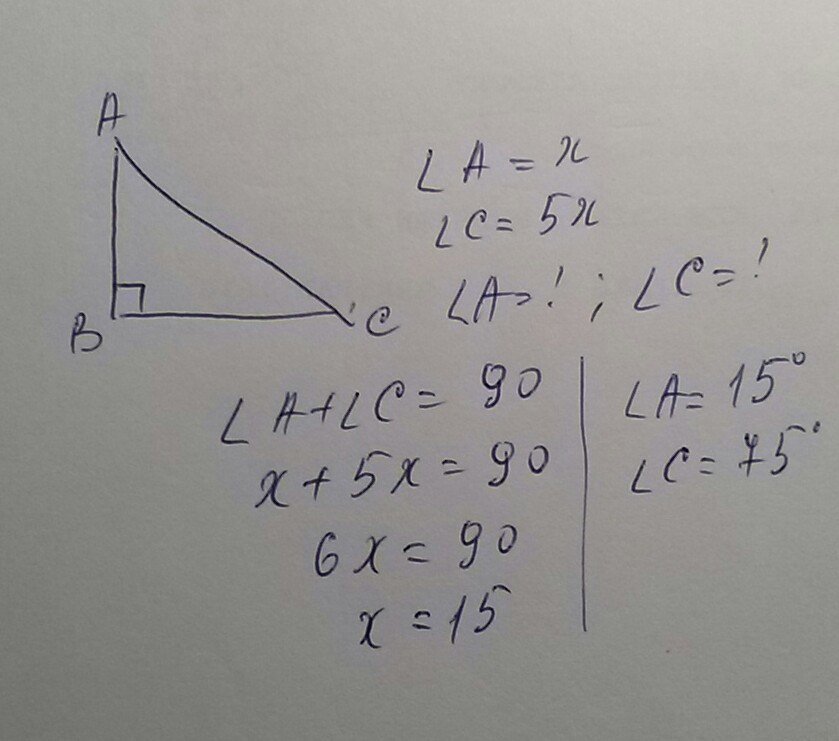 A
B
C
∠A = x
∠C = 5x
∠A = ! ; ∠C = !
∠A + ∠C = 90
x + 5x = 90
6x = 90
x = 15
∠A = 15°
∠C = 75°